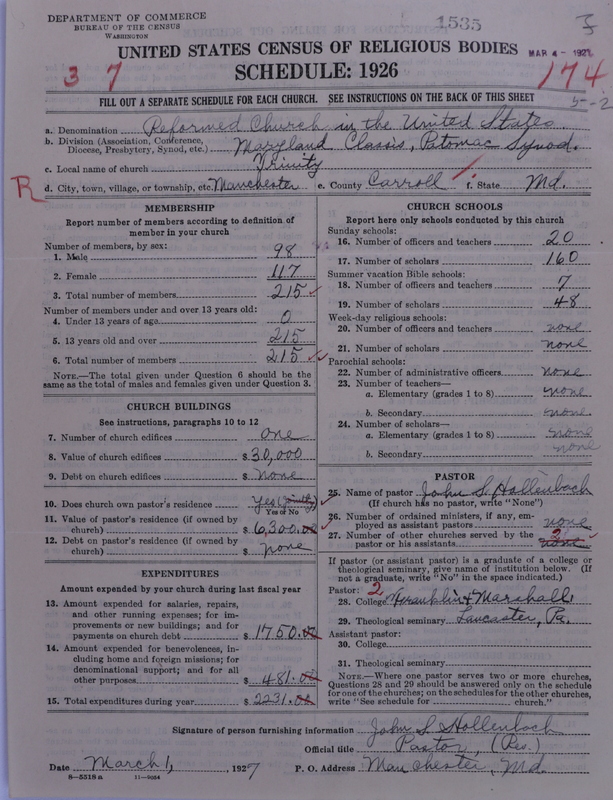 DEPARTMENT OF COMMERCE
BUREAU OF THE CENSUS
WASHINGTON
1535
UNITED STATES CENSUS OF RELIGIOUS BODIES
MAR 4 - 1927
3 7
SCHEDULE: 1926
174
FILL OUT A SEPARATE SCHEDULE FOR EACH CHURCH. SEE INSTRUCTIONS ON THE BACK OF THIS SHEET
a. Denomination Reformed Church in the United States
b. Division (Association, Conference, Diocese, Presbytery, Synod, etc.) Maryland Classis, Potomac Synod.
c. Local name of church Trinity
R d. City, town, village, or township, etc. Manchester e. County Carroll f. State Md.
MEMBERSHIP
Report number of members according to definition of
member in your church
Number of members, by sex:
1. Male 98
2. Female 117
3. Total number of members 215
Number of members under and over 13 years old:
4. Under 13 years of age 0
5. 13 years old and over 215
6. Total number of members 215
NOTE.—The total given under Question 6 should be the
same as the total of males and females given under Question 3.
CHURCH BUILDINGS
See instructions, paragraphs 10 to 12
7. Number of church edifices one
8. Value of church edifices $ 30,000
9. Debt on church edifices $ none
10. Does church own pastor's residence Yes (jointly)
Yes or No
11. Value of pastor's residence (if owned by
church) $ 6,300.00
12. Debt on pastor's residence (if owned by
church) $ none
EXPENDITURES
Amount expended by your church during last fiscal year
13. Amount expended for salaries, repairs,
and other running expenses; for im-
provements or new buildings; and for
payments on church debt $ 1750.00
14. Amount expended for benevolences, in-
cluding home and foreign missions; for
denominational support; and for all
other purposes $ 481.00
15. Total expenditures during year $ 2231.00
CHURCH SCHOOLS
Report here only schools conducted by this church
Sunday schools:
16. Number of officers and teachers 20
17. Number of scholars 160
Summer vacation Bible schools:
18. Number of officers and teachers 7
19. Number of scholars 48
Week-day religious schools:
20. Number of officers and teachers none
21. Number of scholars none
Parochial schools:
22. Number of administrative officers none
23. Number of teachers—
a. Elementary (grades 1 to 8) none
b. Secondary none
24. Number of scholars—
a. Elementary (grades 1 to 8) none
b. Secondary none
PASTOR
25. Name of pastor John S. Hollenbach
(If church has no pastor, write "None")
26. Number of ordained ministers, if any, em-
ployed as assistant pastors none
27. Number of other churches served by the
pastor or his assistants 2 none
If pastor (or assistant pastor) is a graduate of a college or
theological seminary, give name of institution below. (If
not a graduate, write "No" in the space indicated.)
Pastor: 2
28. College Franklin & Marshall
29. Theological seminary Lancaster, Pa.
Assistant pastor:
30. College
31. Theological seminary
NOTE.—Where one pastor serves two or more churches,
Questions 28 and 29 should be answered only on the schedule
for one of the churches; on the schedules for the other churches,
write "See schedule for church."
Signature of person furnishing information John S. Hollenbach
Official title Pastor, (Rev.)
Date March 1, 1927 P. O. Address Manchester, Md.
8—5518 a 11—9034